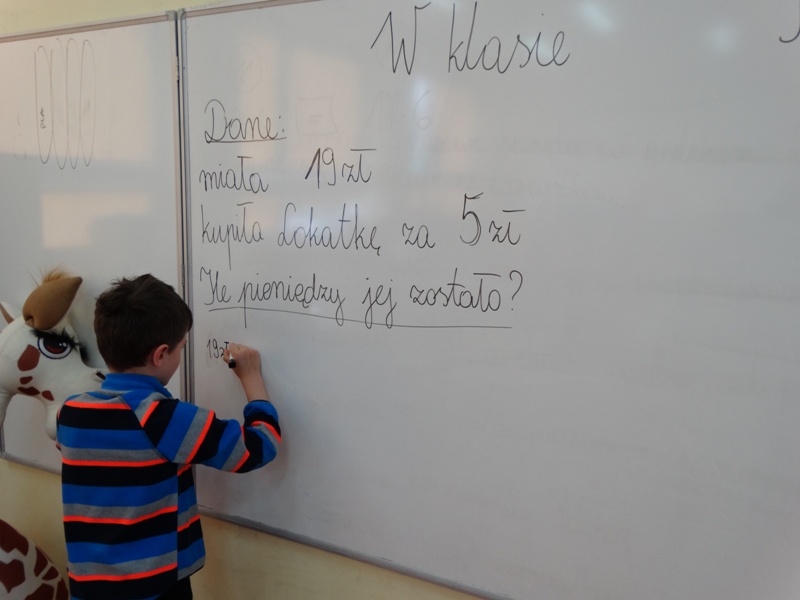 W klasie
Dane:
miała 19 zł
kupiła Lokatkę za 5 zł
Ile pieniędzy jej zostało?
19 zł